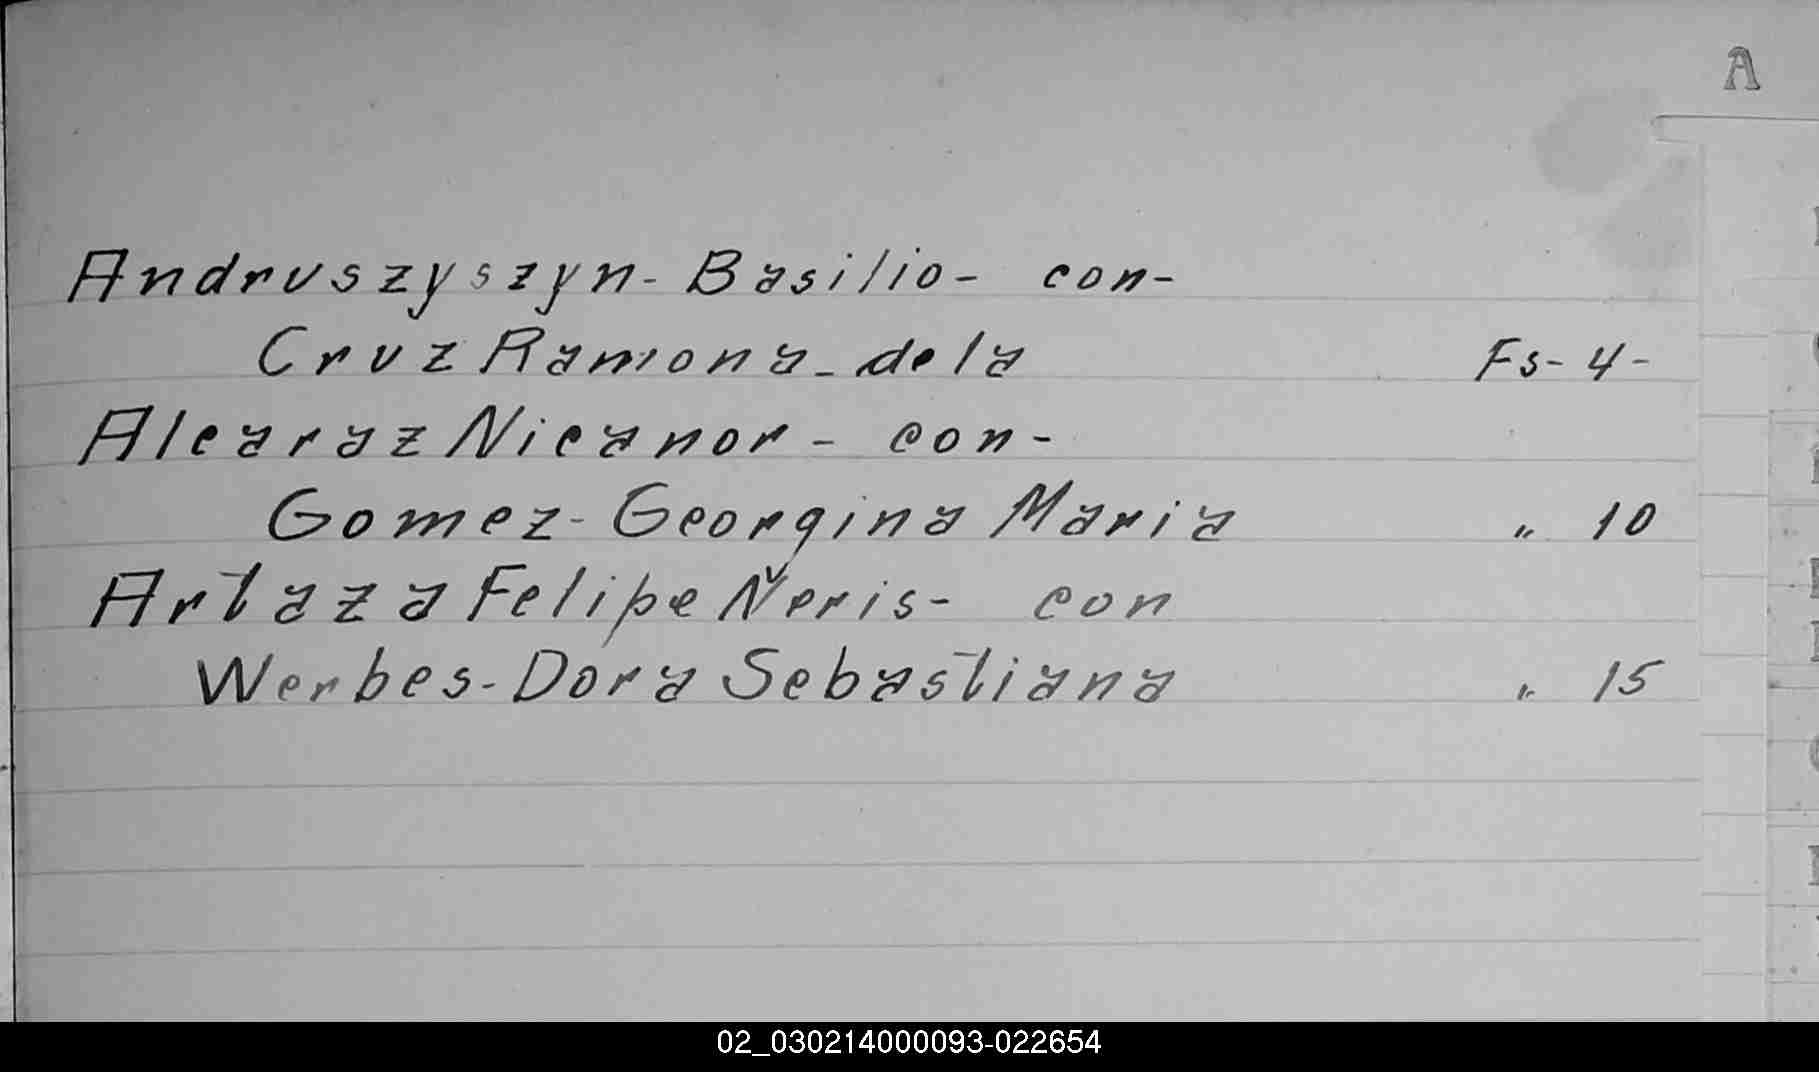 A
Andruszyszyn- Basilio- con-
Cruz Ramona- de la Fs- 4-
Alcaraz Nicanor- con-
Gomez- Georgina Maria " 10
Artaza Felipe Neris- con
Werbes- Dora Sebastiana " 15
02_030214000093-022654